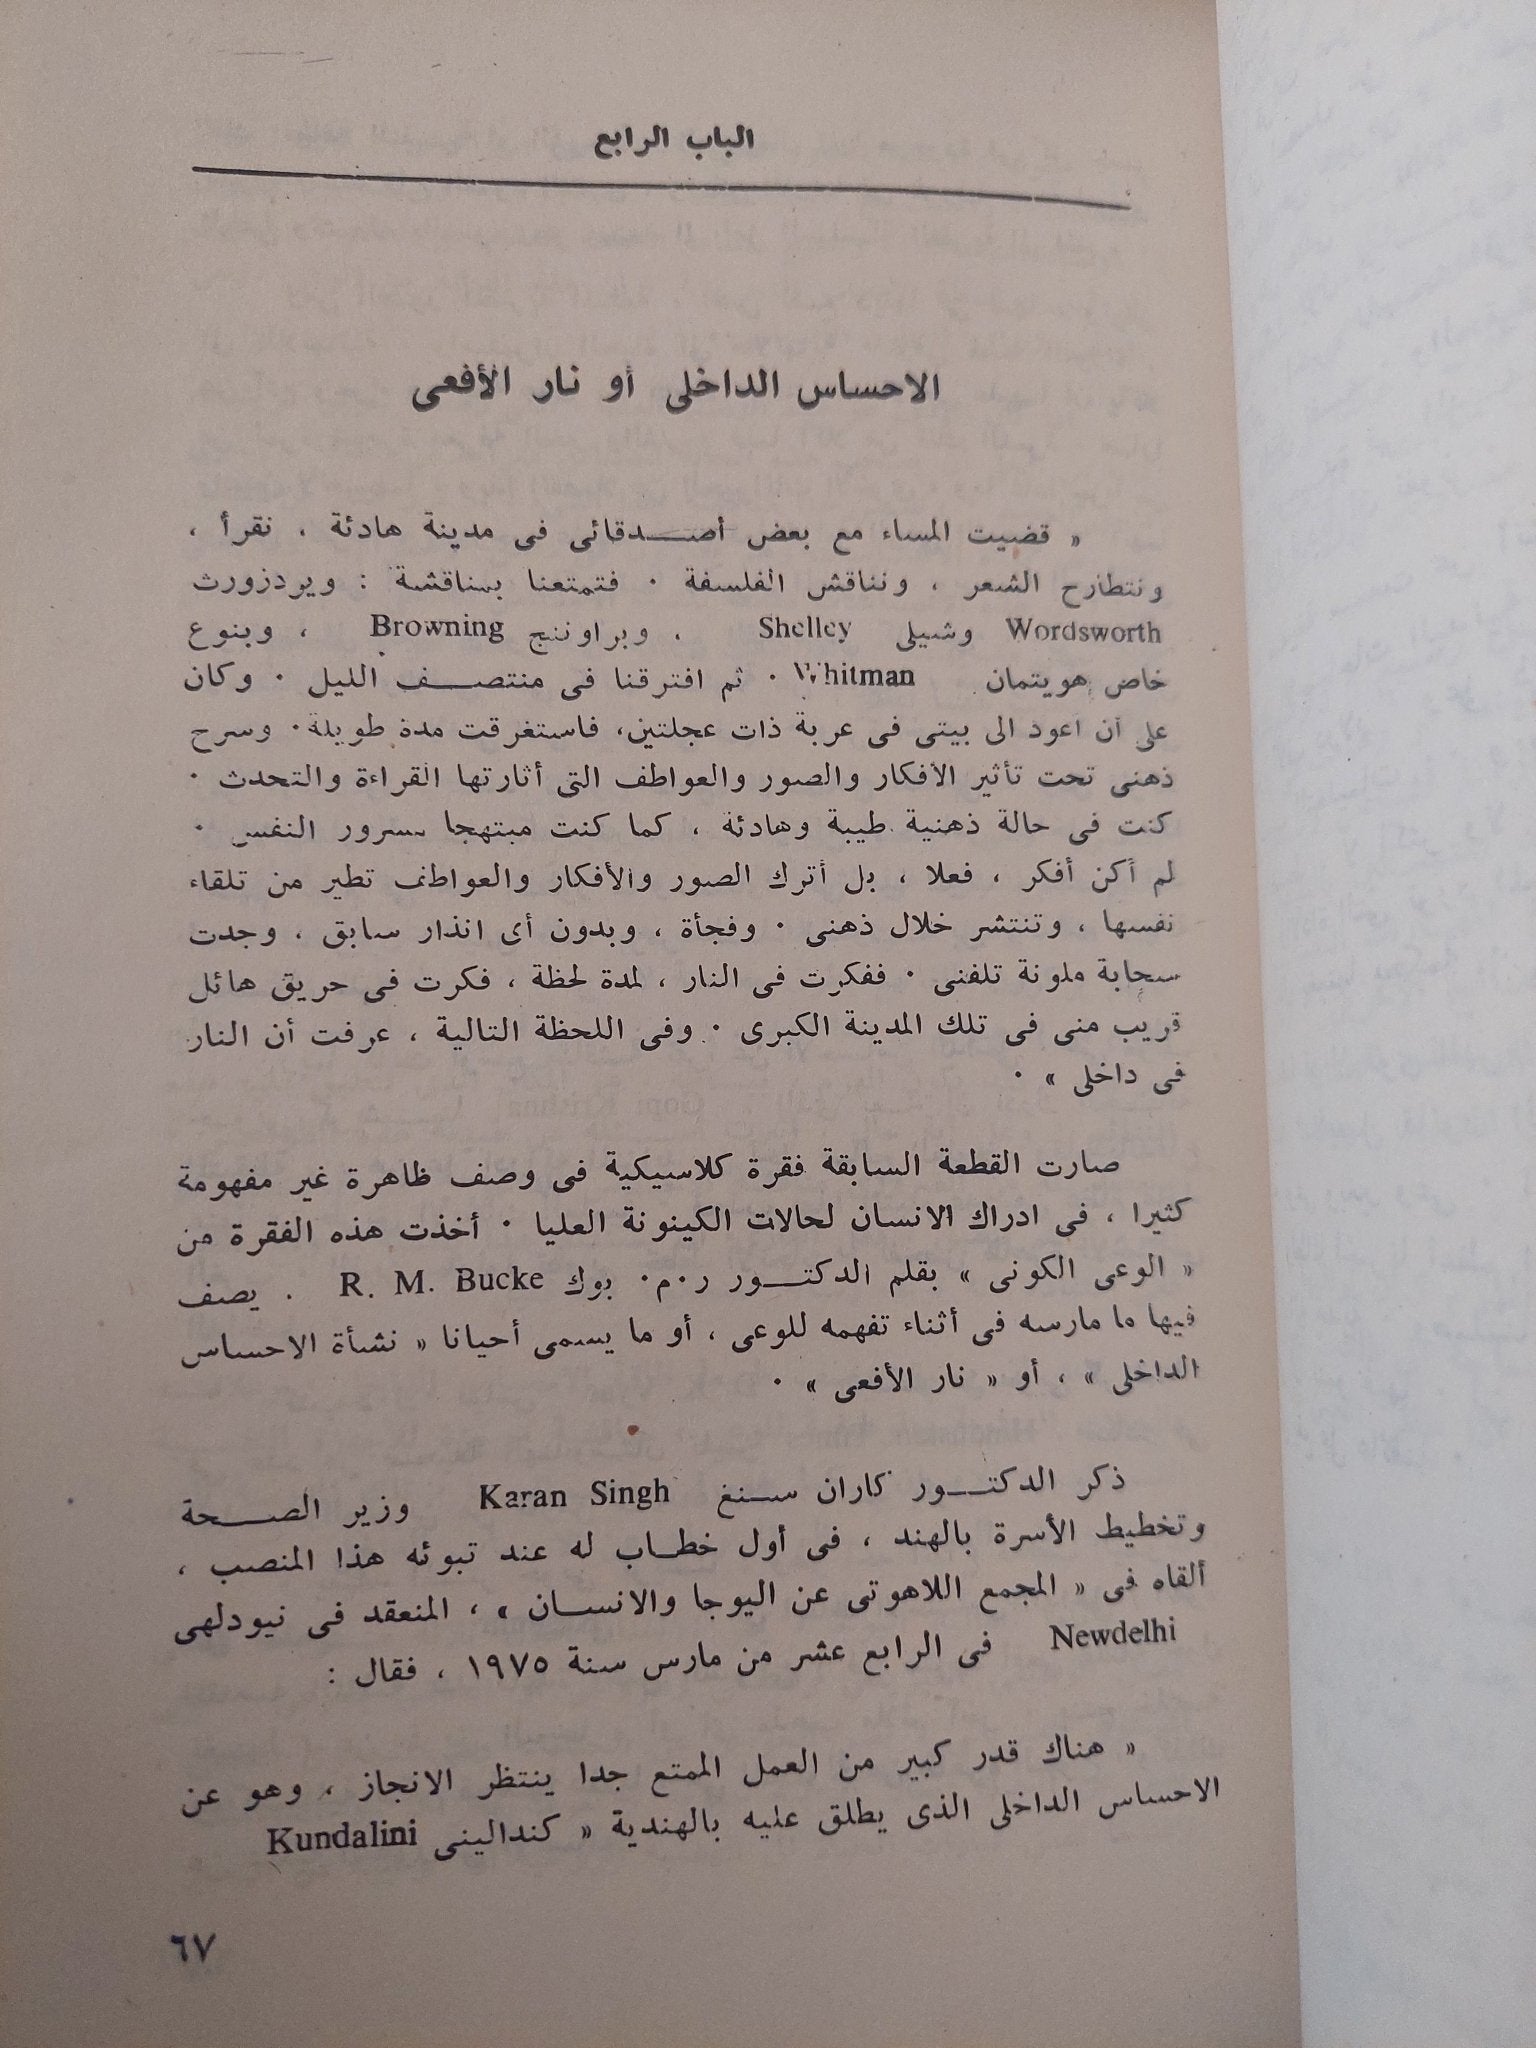 الباب الرابع
الاحساس الداخلى أو نار الأفعى
« قضيت المساء مع بعض أصدقائى فى مدينة هادئة ، نقرأ ،
ونتطارح الشعر ، ونناقش الفلسفة . فتمتعنا بمناقشة : ويردزورث
Wordsworth وشيلى Shelley ، وبراوننج Browning ، وبنوع
خاص هويتمان Whitman . ثم افترقنا فى منتصف الليل . وكان
على أن أعود الى بيتى فى عربة ذات عجلتين، فاستغرقت مدة طويلة . وسرح
ذهنى تحت تأثير الأفكار والصور والعواطف التى أثارتها القراءة والتحدث .
كنت فى حالة ذهنية طيبة وهادئة ، كما كنت مبتهجا بسرور النفس .
لم أكن أفكر ، فعلا ، بل أترك الصور والأفكار والعواطف تطير من تلقاء
نفسها ، وتنتشر خلال ذهنى . وفجأة ، وبدون أى انذار سابق ، وجدت
سحابة ملونة تلفنى . ففكرت فى النار ، لمدة لحظة ، فكرت فى حريق هائل
قريب منى فى تلك المدينة الكبرى . وفى اللحظة التالية ، عرفت أن النار
فى داخلى » .
صارت القطعة السابقة فقرة كلاسيكية فى وصف ظاهرة غير مفهومة
كثيرا ، فى ادراك الانسان لحالات الكينونة العليا . أخذت هذه الفقرة من
« الوعى الكونى » بقلم الدكتور ر.م. بوك R. M. Bucke . يصف
فيها ما مارسه فى أثناء تفهمه للوعى ، أو ما يسمى أحيانا « نشأة الاحساس
الداخلى » ، أو « نار الأفعى » .
ذكر الدكتور كاران سنغ Karan Singh وزير الصحة
وتخطيط الأسرة بالهند ، فى أول خطاب له عند تبوئه هذا المنصب ،
ألقاه فى « المجمع اللاهوتى عن اليوجا والانسان » ، المنعقد فى نيودلهى
Newdelhi فى الرابع عشر من مارس سنة ١٩٧٥ ، فقال :
« هناك قدر كبير من العمل الممتع جدا ينتظر الانجاز ، وهو عن
الاحساس الداخلى الذى يطلق عليه بالهندية « كندالينى Kundalini
٦٧